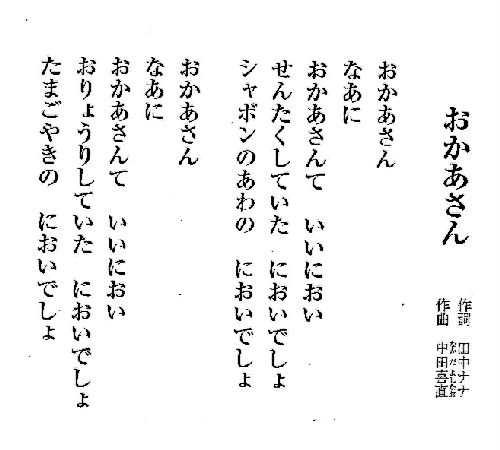 おかあさん
作詞 田中ナナ
作曲 中田喜直
おかあさん
なあに
おかあさんて いいにおい
せんたくしていた においでしょ
シャボンのあわの においでしょ
おかあさん
なあに
おかあさんて いいにおい
おりょうりしていた においでしょ
たまごやきの においでしょ